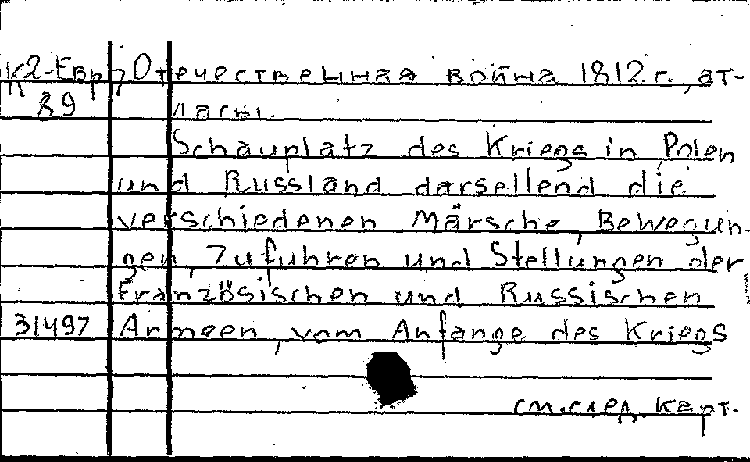 К2-Евр Отечественная война 1812 г., ат-
89 ласы.
Schauplatz des Kriegs in Polen
und Russland darsellend die
verschiedenen Märsche, Bewegun-
gen, Zufuhren und Stellungen der
Französischen und Russischen
31497 Armeen, vom Anfange des Kriegs
см. след. карт.